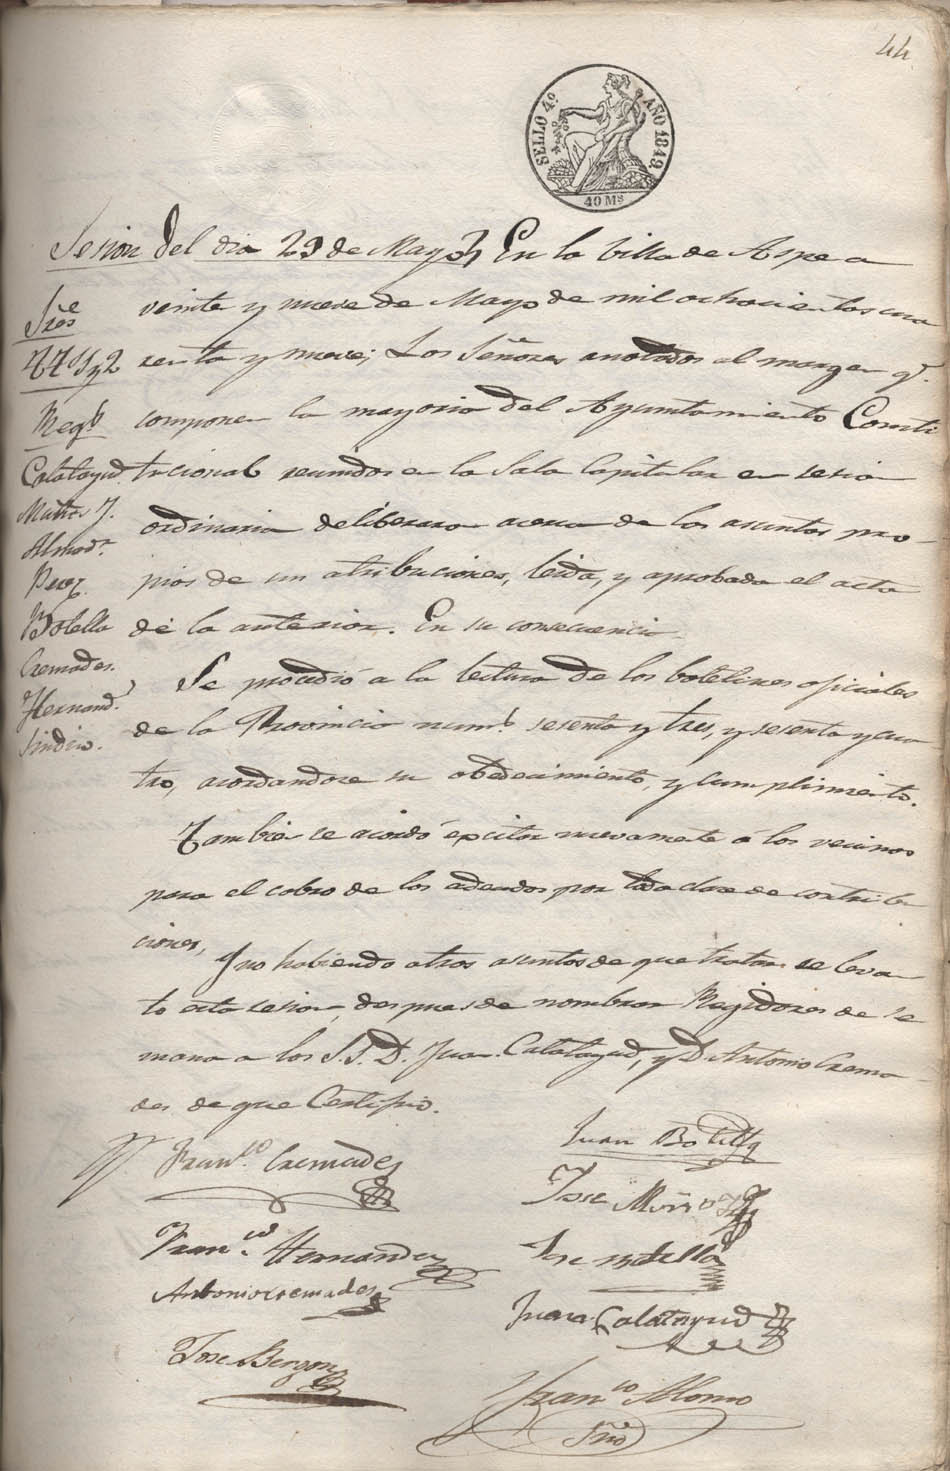 44
SELLO 4º. AÑO 1849.
40 Ms
Sesion del dia 29 de Mayo En la Villa de Aspe a
veinte y nueve de Mayo de mil ochocientos cua
renta y nueve; Los Señores anotados al margen q.
componen la mayoria del Ayuntamiento Consti
tucional reunidos en la Sala Capitular en sesion
ordinaria deliberaron acerca de los asuntos pro-
pios de sus atribuciones, leida, y aprobada el acta
de la anterior. En su consecuencia
Sres
Regs
Calatayud
Muñoz
Almodr
Perez
Botella
Cremades.
Hernandz
Sindico.
Se procedió a la lectura de los boletines oficiales
de la Provincia nums sesenta y tres, y sesenta y cua
tro, acordandose su obedecimiento, y cumplimiento.
Tambien se acordó excitar nuevamente á los vecinos
para el cobro de los adeudos por toda clase de contribu
ciones,
Y no habiendo otros asuntos de que tratar se levan
to esta sesion, despues de nombrar Regidores de se
mana a los S.S. D. Juan Calatayud, y D. Antonio Crema-
des de que Certifico.
Franco Cremades
Juan Botella
Jose Muñoz
Franco Hernandez
Jose Botella
Antonio Cremades
Juan Calatayud
Jose Bergon
Franco Alonso
Srio